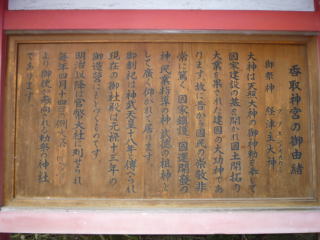 香取神宮の御由緒
御祭神　経津主大神
大神は天照大神の御神勅を奉じて
国家建設の基を開かれ国土開拓の
大業を果された建国の大功神であ
ります。故に昔から国民の崇敬非
常に篤く、国家鎮護、国運開発の
神、民業指導の神、武徳の祖神と
して広く仰がれて居ります。
御創祀は神武天皇十八年と伝へられ
現在の御社殿は元禄十三年の
御造営にかゝるものです。
明治以降は官幣大社に列せられ
毎年四月十四日の例祭には
より御使が参向される勅祭の神社
であります。